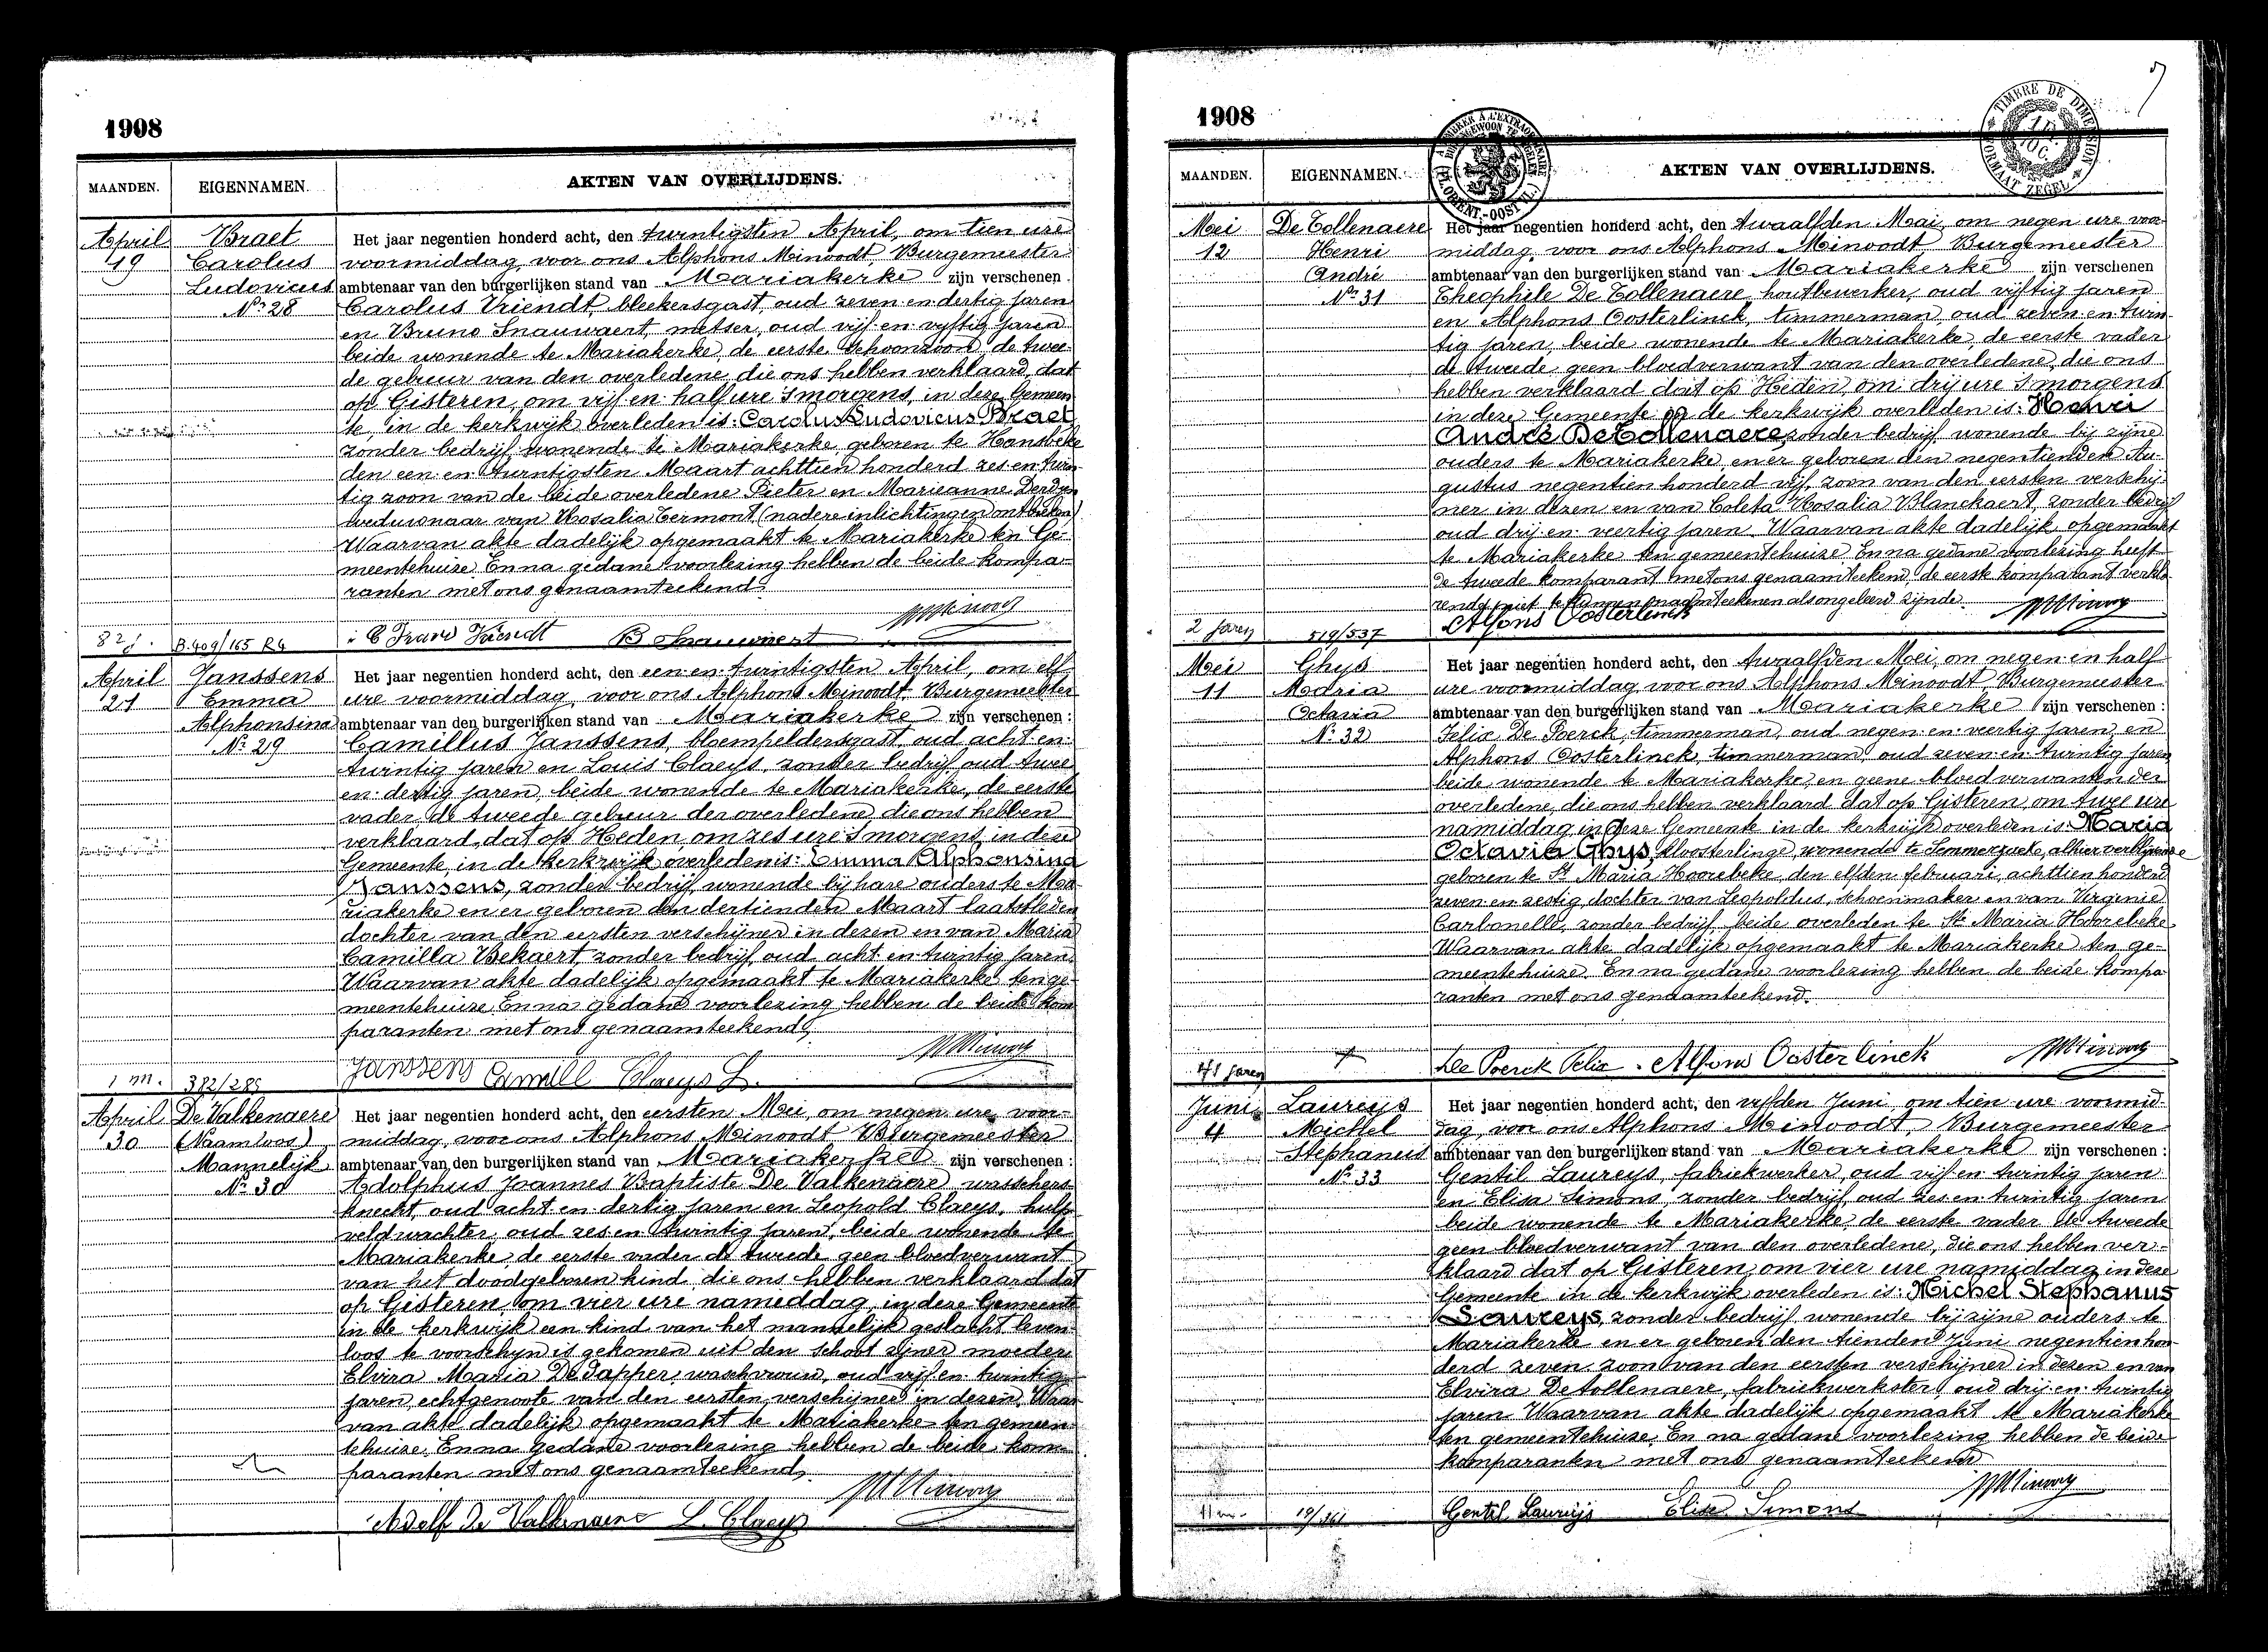 1908
MAANDEN. EIGENNAMEN. AKTEN VAN OVERLIJDENS.
April 19
Braet Carolus Ludovicus
Nr 28
Het jaar negentien honderd acht, den twintigsten April, om tien ure
voormiddag, voor ons Alphons Minoodt Burgemeester
ambtenaar van den burgerlijken stand van Mariakerke zijn verschenen
Carolus Vriendt, bleekersgast, oud zeven-en-dertig jaren
en Bruno Snauwaert, metser, oud vijf-en-vijftig jaren
beide wonende te Mariakerke, de eerste schoonzoon, de twee-
de gebuur van den overledene, die ons hebben verklaard, dat
op Gisteren, om vijf en half ure 's morgens, in deze Gemeen-
te, in de kerkwijk overleden is: Carolus Ludovicus Braet
zonder bedrijf, wonende te Mariakerke, geboren te Hansbeke
den een-en-twintigsten Maart achttien honderd zes-en-twin-
tig, zoon van de beide overledene Pieter en Marieanne
weduwnaar van Rosalia Termont (nadere inlichtingen ontbreken)
Waarvan akte dadelijk opgemaakt te Mariakerke ten Ge-
meentehuize. En na gedane voorlezing hebben de beide kompa-
ranten met ons genaamteekend.
82 j. B. 409/165 R4
Vriendt B Snauwaert
April 21
Janssens Emma Alphonsina
Nr 29
Het jaar negentien honderd acht, den een-en-twintigsten April, om elf
ure voormiddag, voor ons Alphons Minoodt Burgemeester
ambtenaar van den burgerlijken stand van Mariakerke zijn verschenen:
Camillus Janssens, bloemkeldersgast oud acht-en-
twintig jaren en Louis Claeys, zonder bedrijf, oud twee-
en-dertig jaren, beide wonende te Mariakerke, de eerste
vader, de tweede gebuur der overledene, die ons hebben
verklaard, dat op Heden, om zes ure 's morgens, in deze
Gemeente, in de kerkwijk overleden is: Emma Alphonsina
Janssens, zonder bedrijf, wonende bij hare ouders te Ma-
riakerke en er geboren den dertienden Maart laatstleden
dochter van den eersten verschijner in dezen en van Maria
Camilla Bekaert, zonder bedrijf, oud acht-en-twintig jaren.
Waarvan akte dadelijk opgemaakt te Mariakerke ten ge-
meentehuize. En na gedane voorlezing hebben de beide kom-
paranten met ons genaamteekend.
1 m. 372/289
Janssens Camill Claeys L.
April 30
De Valkenaere (Naamloos) Mannelijk
Nr 30
Het jaar negentien honderd acht, den eersten Mei, om negen ure voor-
middag, voor ons Alphons Minoodt Burgemeester
ambtenaar van den burgerlijken stand van Mariakerke zijn verschenen:
Adolphus Joannes Baptiste De Valkenaere, wasschers-
knecht, oud acht-en-dertig jaren en Leopold Claeys, hulp-
veldwachter, oud zes-en-twintig jaren, beide wonende te
Mariakerke, de eerste vader de tweede geen bloedverwant
van het doodgeboren kind, die ons hebben verklaard dat
op Gisteren, om vier ure namiddag, in deze Gemeente
in de kerkwijk een kind van het mannelijk geslacht leven-
loos te voorschijn is gekomen uit den schoot zijner moeder
Elvira Maria De Tapper, waschvrouw, oud vijf-en-twintig
jaren, echtgenoote van den eersten verschijner in dezen. Waar-
van akte dadelijk opgemaakt te Mariakerke ten gemeen-
tehuize. En na gedane voorlezing hebben de beide kom-
paranten met ons genaamteekend.
Adolf De Valkenaere L. Claeys
1908
TIMBRE DE DIMENSION
FORMAAT ZEGEL
MAANDEN. EIGENNAMEN. AKTEN VAN OVERLIJDENS.
Mei 12
De Tollenaere Henri André
Nr 31
Het jaar negentien honderd acht, den twaalfden Mai, om negen ure voor-
middag, voor ons Alphons Minoodt Burgemeester
ambtenaar van den burgerlijken stand van Mariakerke zijn verschenen
Theophile De Tollenaere, houtbewerker, oud vijftig jaren
en Alphons Oosterlinck, timmerman, oud zeven-en-twin-
tig jaren, beide wonende te Mariakerke, de eerste vader
de tweede geen bloedverwant van den overledene, die ons
hebben verklaard dat op Heden, om drij ure 's morgens
in deze Gemeente de kerkwijk overleden is: Henri
André De Tollenaere, zonder bedrijf, wonende bij zijne
ouders te Mariakerke, en er geboren den negentienden Au-
gustus negentien honderd vijf, zoon van den eersten verschij-
ner in dezen en van Coleta Rosalia Blanckaert, zonder bedrijf
oud drij-en-veertig jaren. Waarvan akte dadelijk opgemaakt
te Mariakerke ten gemeentehuize. En na gedane voorlezing heeft
de tweede komparant met ons genaamteekend, de eerste komparant verkla-
rende niet te kunnen naamteekenen als ongeleerd zijnde.
2 jaren 519/537
Alfons Oosterlinck
Mei 11
Ghys Maria Octavia
Nr 32
Het jaar negentien honderd acht, den twaalfden Mei, om negen en half
ure voormiddag, voor ons Alphons Minoodt Burgemeester
ambtenaar van den burgerlijken stand van Mariakerke zijn verschenen:
Felix De Poerck, timmerman, oud negen-en-veertig jaren, en
Alphons Oosterlinck, timmerman, oud zeven-en-twintig jaren
beide wonende te Mariakerke, en geene bloedverwanten der
overledene, die ons hebben verklaard dat op Gisteren, om twee ure
namiddag in deze Gemeente in de kerkwijk overleden is: Maria
Octavia Ghys, kloosterlinge, wonende te Semmerzaeke, alhier verblijvende
geboren te St Maria Hoorebeke, den elfden februari, achttien honderd
zeven-en-zestig, dochter van Leopoldus, schoenmaker en van Virgenie
Carbonelle, zonder bedrijf, beide overleden te St Maria Hoorebeke
Waarvan akte dadelijk opgemaakt te Mariakerke ten ge-
meentehuize. En na gedane voorlezing hebben de beide kompa-
ranten met ons genaamteekend.
41 jaren
De Poerck Felix. Alfons Oosterlinck
Juni 4
Laureys Michel Stephanus
Nr 33
Het jaar negentien honderd acht, den vijfden Juni, om tien ure voormid-
dag, voor ons Alphons Minoodt, Burgemeester
ambtenaar van den burgerlijken stand van Mariakerke zijn verschenen:
Gentil Laureys, fabriekwerker, oud vijf-en-twintig jaren
en Elisa Simons, zonder bedrijf, oud zes-en-twintig jaren
beide wonende te Mariakerke, de eerste vader de tweede
geen bloedverwant van den overledene, die ons hebben ver-
klaard dat op Gisteren, om vier ure namiddag, in deze
Gemeente in de kerkwijk overleden is: Michel Stephanus
Laureys, zonder bedrijf, wonende bij zijne ouders te
Mariakerke en er geboren den tienden Juni negentien hon-
derd zeven, zoon van den eersten verschijner in dezen en van
Elvira Detollenaere, fabriekwerkster, oud drij-en-twintig
jaren. Waarvan akte dadelijk opgemaakt te Mariakerke
ten gemeentehuize. En na gedane voorlezing hebben de beide
komparanten met ons genaamteekend
11 m. 19/361
Gentil Laureys Elise Simons